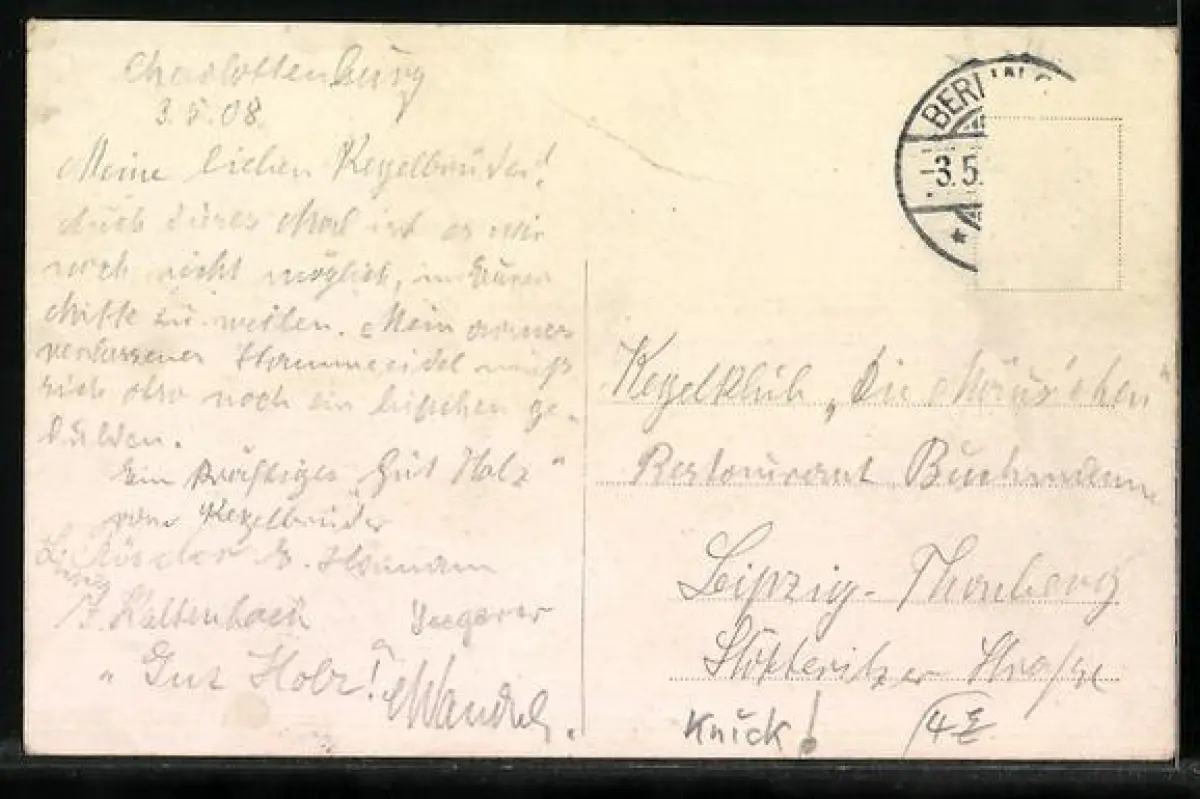 Charlottenburg
3.5.08.
Meine lieben Kegelbrüder!
Auch dieses Mal ist es mir
noch nicht möglich, in Eurer
Mitte zu weilen. Mein armer
verlassener muß
sich also noch ein bischen ge-
dulden.
Ein kräftiges Gut Holz"
vom Kegelbruder
Kaltenbach
"Gut Holz!"
BERLIN
-3.5.
Kegelklub "Die Mäus'chen"
Restaurant Buchmann
Leipzig-Thonberg
Stötteritzer Straße
Knick!